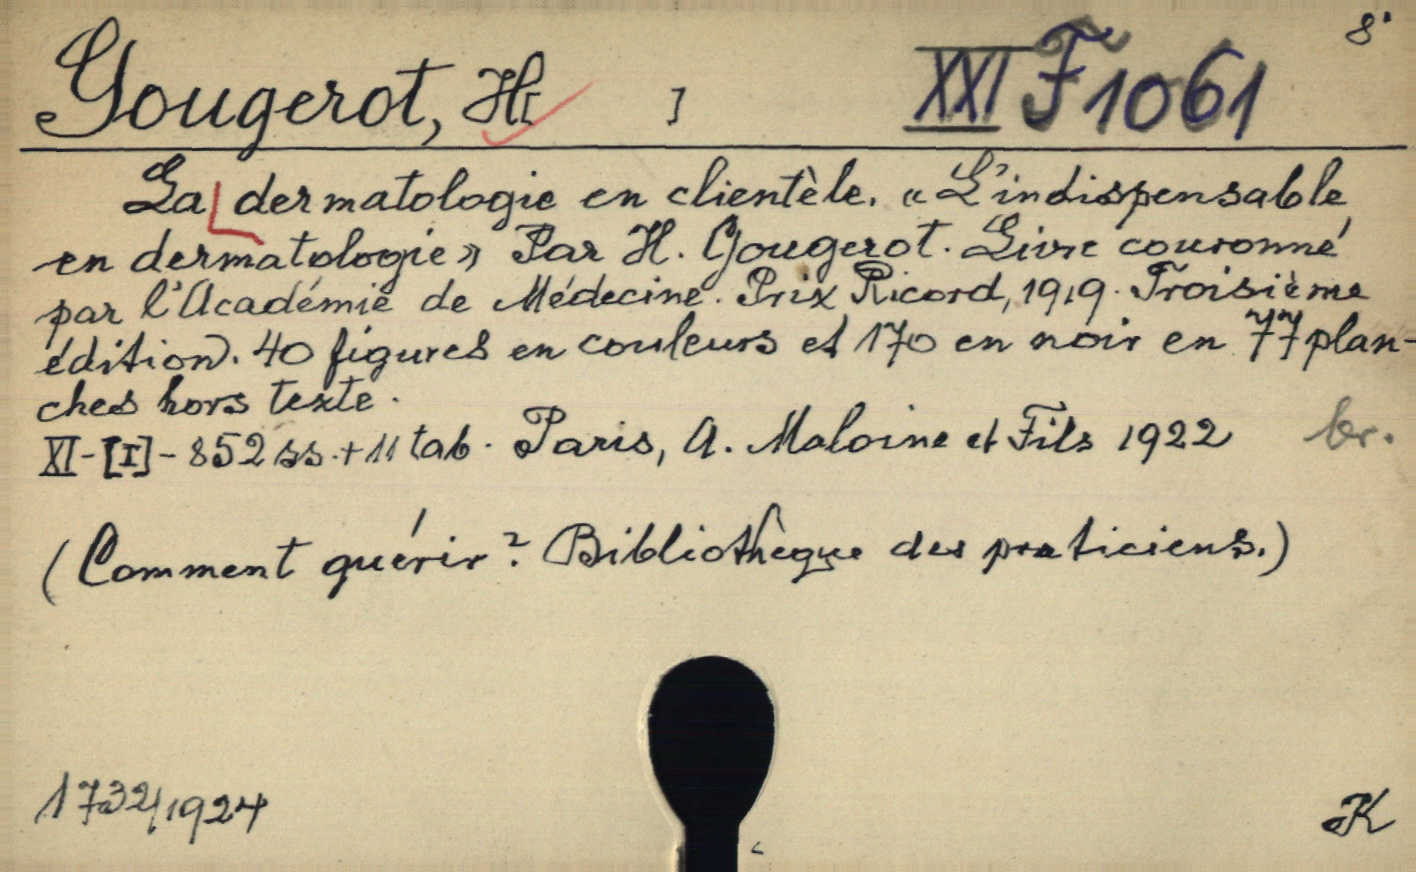 8°
Gougerot, H[ ] XXI F 1061
La dermatologie en clientèle. « L'indispensable
en dermatologie » Par H. Gougerot. Livre couronné
par l'Académie de Médecine. Prix Ricord, 1919. Troisième
édition. 40 figures en couleurs et 170 en noir en 77 plan-
ches hors texte.
XI-[I]-852 ss.+11 tab. Paris, A. Maloine et Fils 1922 br.
(Comment guérir? Bibliothèque des praticiens.)
1732/1924 K